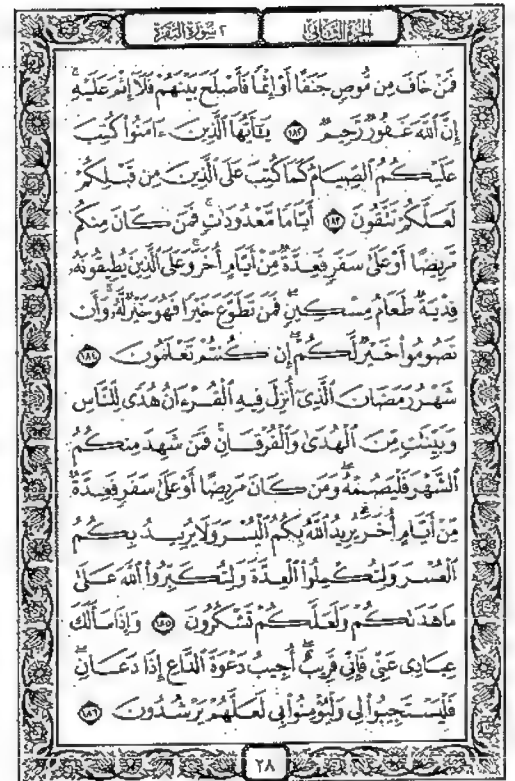 الجزء الثاني
٢ سورة البقرة
فَمَنْ خَافَ مِن مُّوصٍ جَنَفًا أَوْ إِثْمًا فَأَصْلَحَ بَيْنَهُمْ فَلَآ إِثْمَ عَلَيْهِ ۚ
إِنَّ ٱللَّهَ غَفُورٌ رَّحِيمٌ ١٨٢ يَٰٓأَيُّهَا ٱلَّذِينَ ءَامَنُوا۟ كُتِبَ
عَلَيْكُمُ ٱلصِّيَامُ كَمَا كُتِبَ عَلَى ٱلَّذِينَ مِن قَبْلِكُمْ
لَعَلَّكُمْ تَتَّقُونَ ١٨٣ أَيَّامًا مَّعْدُودَٰتٍ ۚ فَمَن كَانَ مِنكُم
مَّرِيضًا أَوْ عَلَىٰ سَفَرٍ فَعِدَّةٌ مِّنْ أَيَّامٍ أُخَرَ ۚ وَعَلَى ٱلَّذِينَ يُطِيقُونَهُۥ
فِدْيَةٌ طَعَامُ مِسْكِينٍ ۖ فَمَن تَطَوَّعَ خَيْرًا فَهُوَ خَيْرٌ لَّهُۥ ۚ وَأَن
تَصُومُوا۟ خَيْرٌ لَّكُمْ ۖ إِن كُنتُمْ تَعْلَمُونَ ١٨٤
شَهْرُ رَمَضَانَ ٱلَّذِىٓ أُنزِلَ فِيهِ ٱلْقُرْءَانُ هُدًى لِّلنَّاسِ
وَبَيِّنَٰتٍ مِّنَ ٱلْهُدَىٰ وَٱلْفُرْقَانِ ۚ فَمَن شَهِدَ مِنكُمُ
ٱلشَّهْرَ فَلْيَصُمْهُ ۖ وَمَن كَانَ مَرِيضًا أَوْ عَلَىٰ سَفَرٍ فَعِدَّةٌ
مِّنْ أَيَّامٍ أُخَرَ ۗ يُرِيدُ ٱللَّهُ بِكُمُ ٱلْيُسْرَ وَلَا يُرِيدُ بِكُمُ
ٱلْعُسْرَ وَلِتُكْمِلُوا۟ ٱلْعِدَّةَ وَلِتُكَبِّرُوا۟ ٱللَّهَ عَلَىٰ
مَا هَدَىٰكُمْ وَلَعَلَّكُمْ تَشْكُرُونَ ١٨٥ وَإِذَا سَأَلَكَ
عِبَادِى عَنِّى فَإِنِّى قَرِيبٌ ۖ أُجِيبُ دَعْوَةَ ٱلدَّاعِ إِذَا دَعَانِ ۖ
فَلْيَسْتَجِيبُوا۟ لِى وَلْيُؤْمِنُوا۟ بِى لَعَلَّهُمْ يَرْشُدُونَ ١٨٦
٢٨